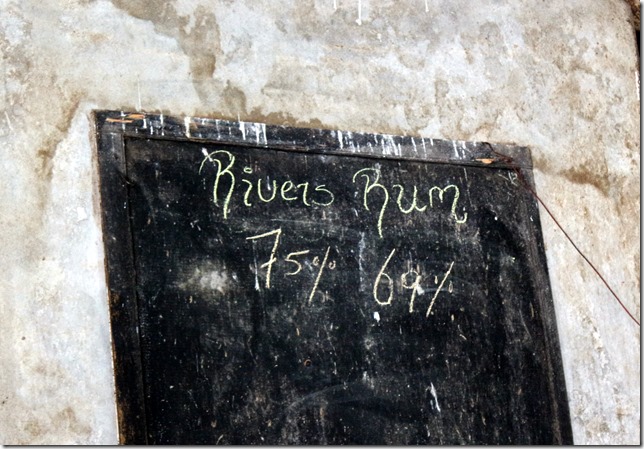 Rivers Rum
75% 69%